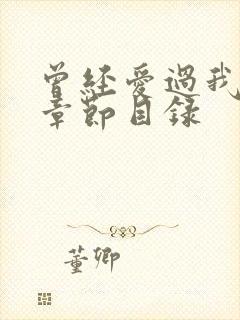 曾經愛過我
章節目錄
董卿